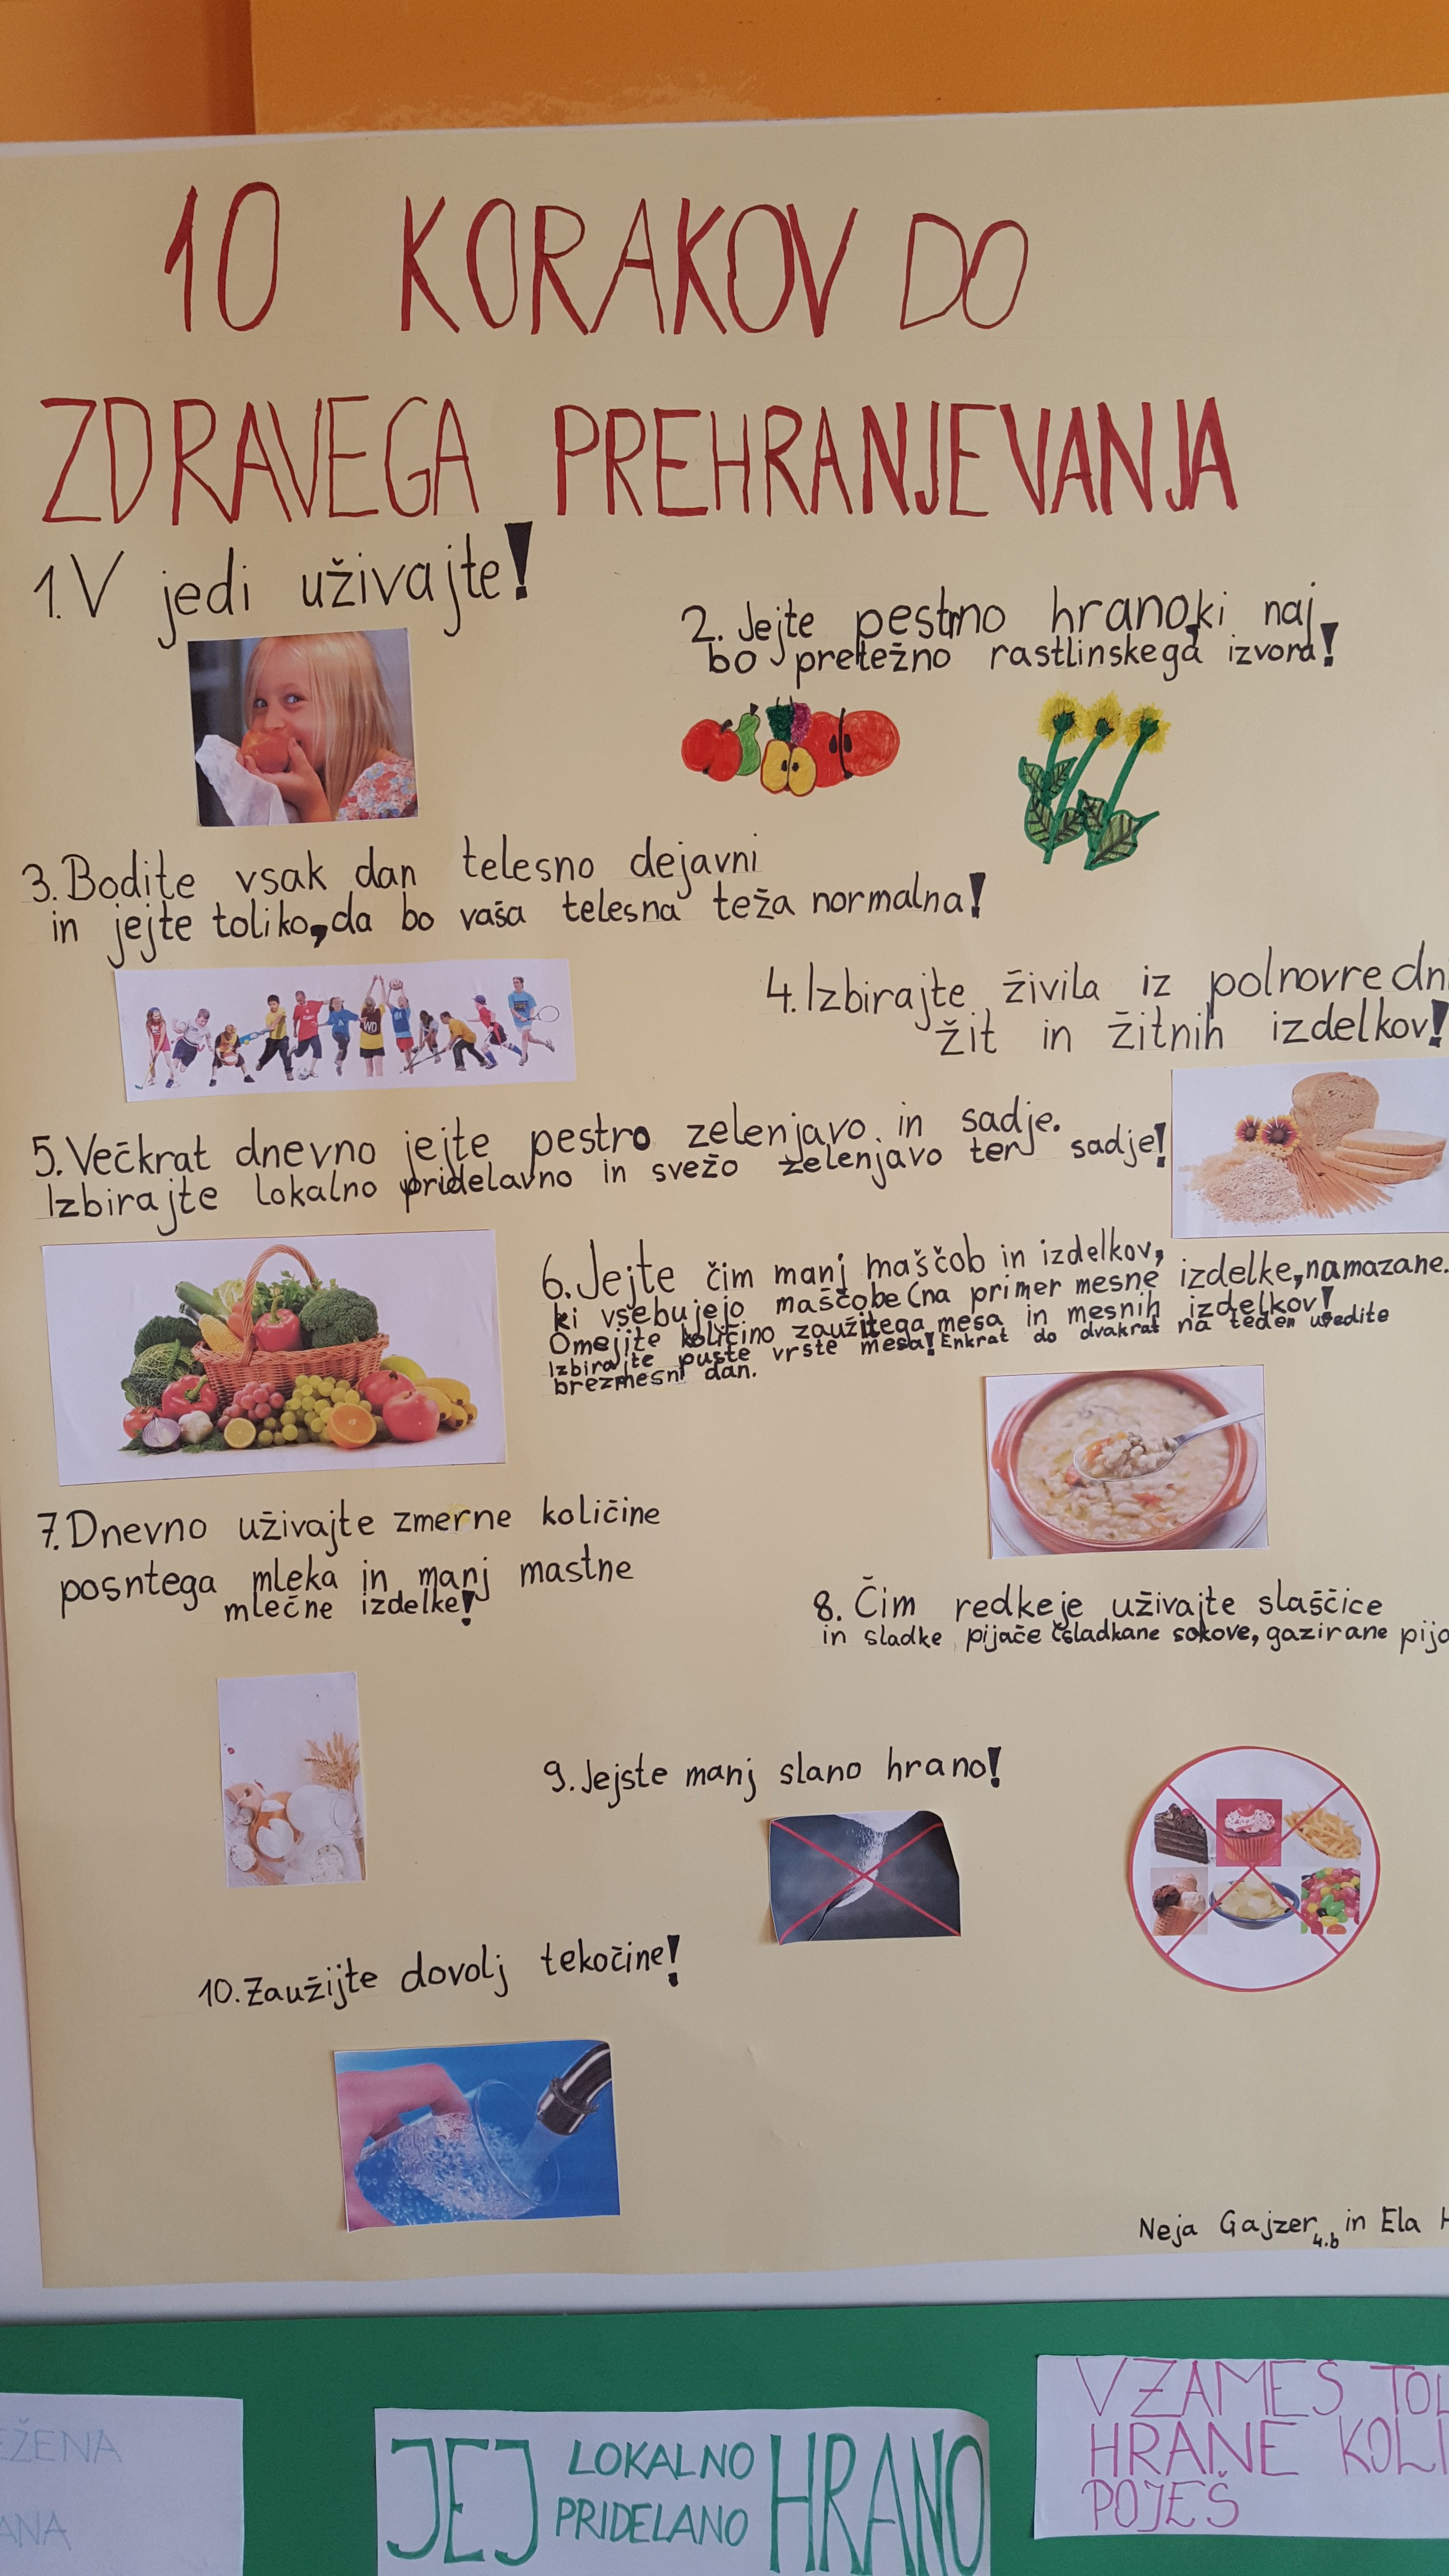 10 KORAKOV DO
ZDRAVEGA PREHRANJEVANJA
1. V jedi uživajte!
2. Jejte pestrno hrano, ki naj
bo pretežno rastlinskega izvora!
3. Bodite vsak dan telesno dejavni
in jejte toliko, da bo vaša telesna teža normalna!
4. Izbirajte živila iz polnovredni
žit in žitnih izdelkov!
5. Večkrat dnevno jejte pestro zelenjavo in sadje.
Izbirajte lokalno pridelavno in svežo zelenjavo ter sadje!
6. Jejte čim manj maščob in izdelkov,
ki všebujejo maščobe (na primer mesne izdelke, namazane.
Omejite količino zaužitega mesa in mesnih izdelkov!
Izbirajte puste vrste mesa! Enkrat do dvakrat na teden uvedite
brezmesni dan.
7. Dnevno uživajte zmerne količine
posntega mleka in manj mastne
mlečne izdelke!
8. Čim redkeje uživajte slaščice
in sladke pijače (sladkane sokove, gazirane pija
9. Jejste manj slano hrano!
WD
10. Zaužijte dovolj tekočine!
Neja Gajzer in Ela H
4.b
EŽENA
ANA
JEJ LOKALNO PRIDELANO HRANO
VZAMEŠ TOL
HRANE KOLI
POJEŠ